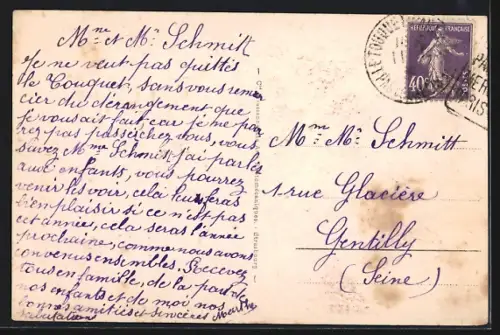 Mme et Mr Schmitt
Je ne veut pas quitter
le Touquet, sans vous remer
cier du dérangement que
je vous ait fait car je ne par
rez pas passé chez vous, vous
savez Mme Schmitt j'ai parler
aux enfants, vous pourrez
venir les voir, cela leur feras
bien plaisir si ce n'est pas
cet année, cela sera l'année
prochaine, comme nous avons
convenus ensembles. Recevez
tous en famille, de la part de
nos enfants et de moi nos
bonnes amitiés et sincères
salutation Marthe
REPUBLIQUE FRANÇAISE
40
PARIS
Mme Mr Schmitt
1 rue Glacière
Gentilly
(Seine)